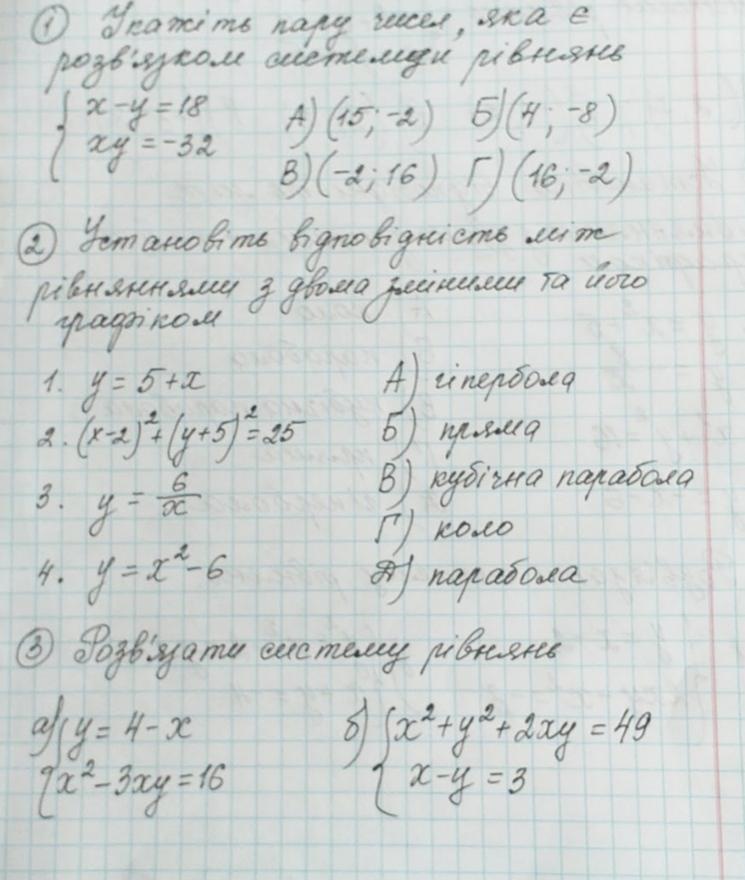 ① Укажіть пару чисел, яка є
розв'язком системи рівнянь
{ x-y=18
xy=-32
А) (15; -2) Б) (4; -8)
В) (-2; 16) Г) (16; -2)
② Установіть відповідність між
рівняннями з двома змінними та його
графіком
1. y = 5+x А) гіпербола
2. (x-2)²+(y+5)²=25 Б) пряма
3. y = 6/x В) кубічна парабола
Г) коло
4. y = x²-6 Д) парабола
③ Розв'язати систему рівнянь
а) { y = 4-x
x²-3xy=16
б) { x²+y²+2xy = 49
x-y = 3